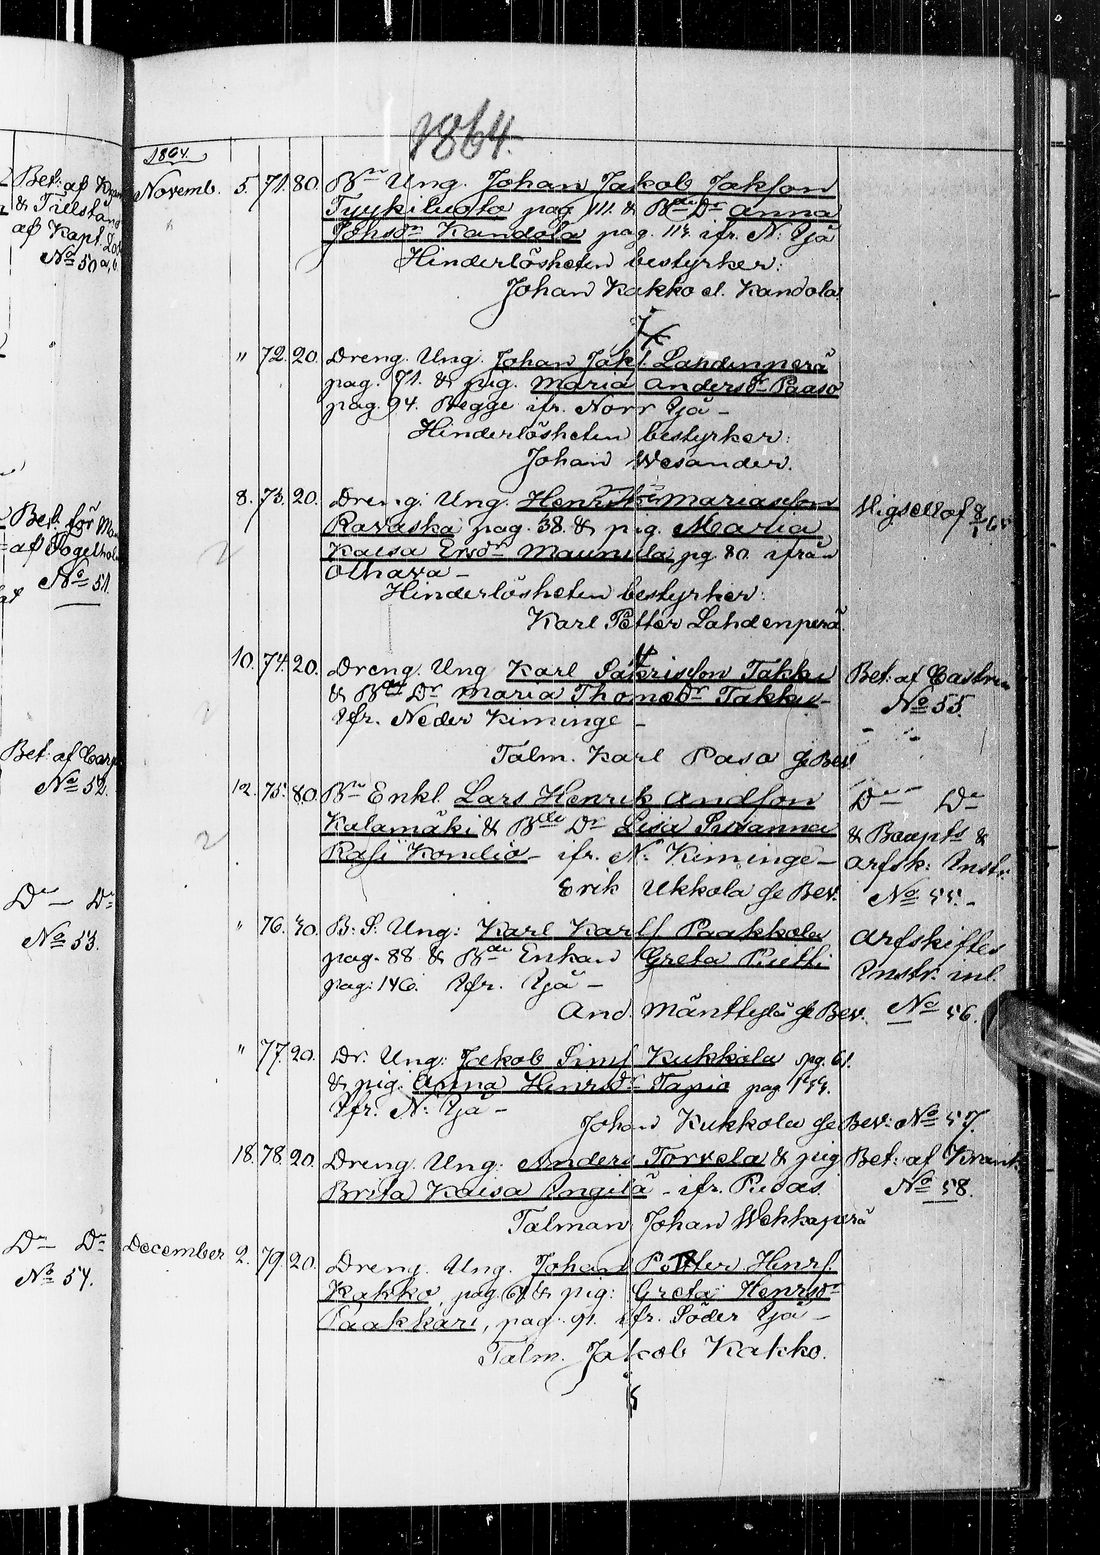 1864.
Bet: af
& Tillstånd
af Kapt.
No 50
Bet. för
af Fogelholm
No 51
Bet. af
No 52.
Do — Do
No 53.
Do — Do
No 54.
1864.
Novemb. 5. 71. 80. Bn Ung. Johan Jakob Jakson
Tyykiluoto pag 111. & Bde Dr Anna
Johsdr Kandola pag. 114 ifr. N: Ijå
Hinderlösheten bestyrker:
Johan Kakko el. Kandola.
" 72. 20. Dreng. Ung. Johan Jak. Lahdenperä
pag. 71. & pig. Maria Andersdr Paaso
pag. 94. Begge ifr. Norr Ijå —
Hinderlösheten bestyrker:
Johan Wesander.
8. 73. 20. Dreng. Ung. Henrik Mariasson
Ravaska pag. 38. & pig. Maria
Kaisa Ersdr Maunula pg. 80 ifrån
Olhava —
Hinderlösheten bestyrker:
Karl Petter Lahdenperä.
Vigsel af 8/1 65
10. 74. 20. Dreng. Ung Karl Sakrisson Takku
& Bde Dr Maria Thomsdr Takku —
Ifr. Neder Kiminge —
Talm. Karl Paso ge Bev.
Bet: af Castren
No 55.
12. 75. 80. Bn Enkl. Lars Henrik Andson
Kalamäki & Bde Dr Lisa Susanna
Kondio — ifr. N: Kiminge —
Erik Ukkola ge Bev.
Do — Do
& &
Arfsk: Instr.
No 55. —
" 76. 40. B. S. Ung: Karl Karls. Paakkola
pag. 88 & Bde Enkan Greta Kutti
pag: 146. Ifr. Ijå —
And. ge Bev.
Arfskiftes
Instr. inl.
No 56.
" 77. 20. Dr. Ung: Jakob Sims. Kukkola pg. 61.
& pig. Anna Henrsdr Tapio pag.
Ifr. N: Ijå —
Johan Kukkola ge Bev: No 57.
18. 78. 20. Dreng. Ung: Anders Torvela & pig
Brita Kaisa Ingilä — ifr. Pudas.
Talman Johan Wehkaperä
Bet: af
No 58.
December 2. 79. 20. Dreng. Ung. Johan Petter Henrs.
Kakko, pag. 64 & pig: Greta Henrsdr
Paakkari, pag. 91. ifr. Söder Ijå —
Talm. Jakob Kakko.